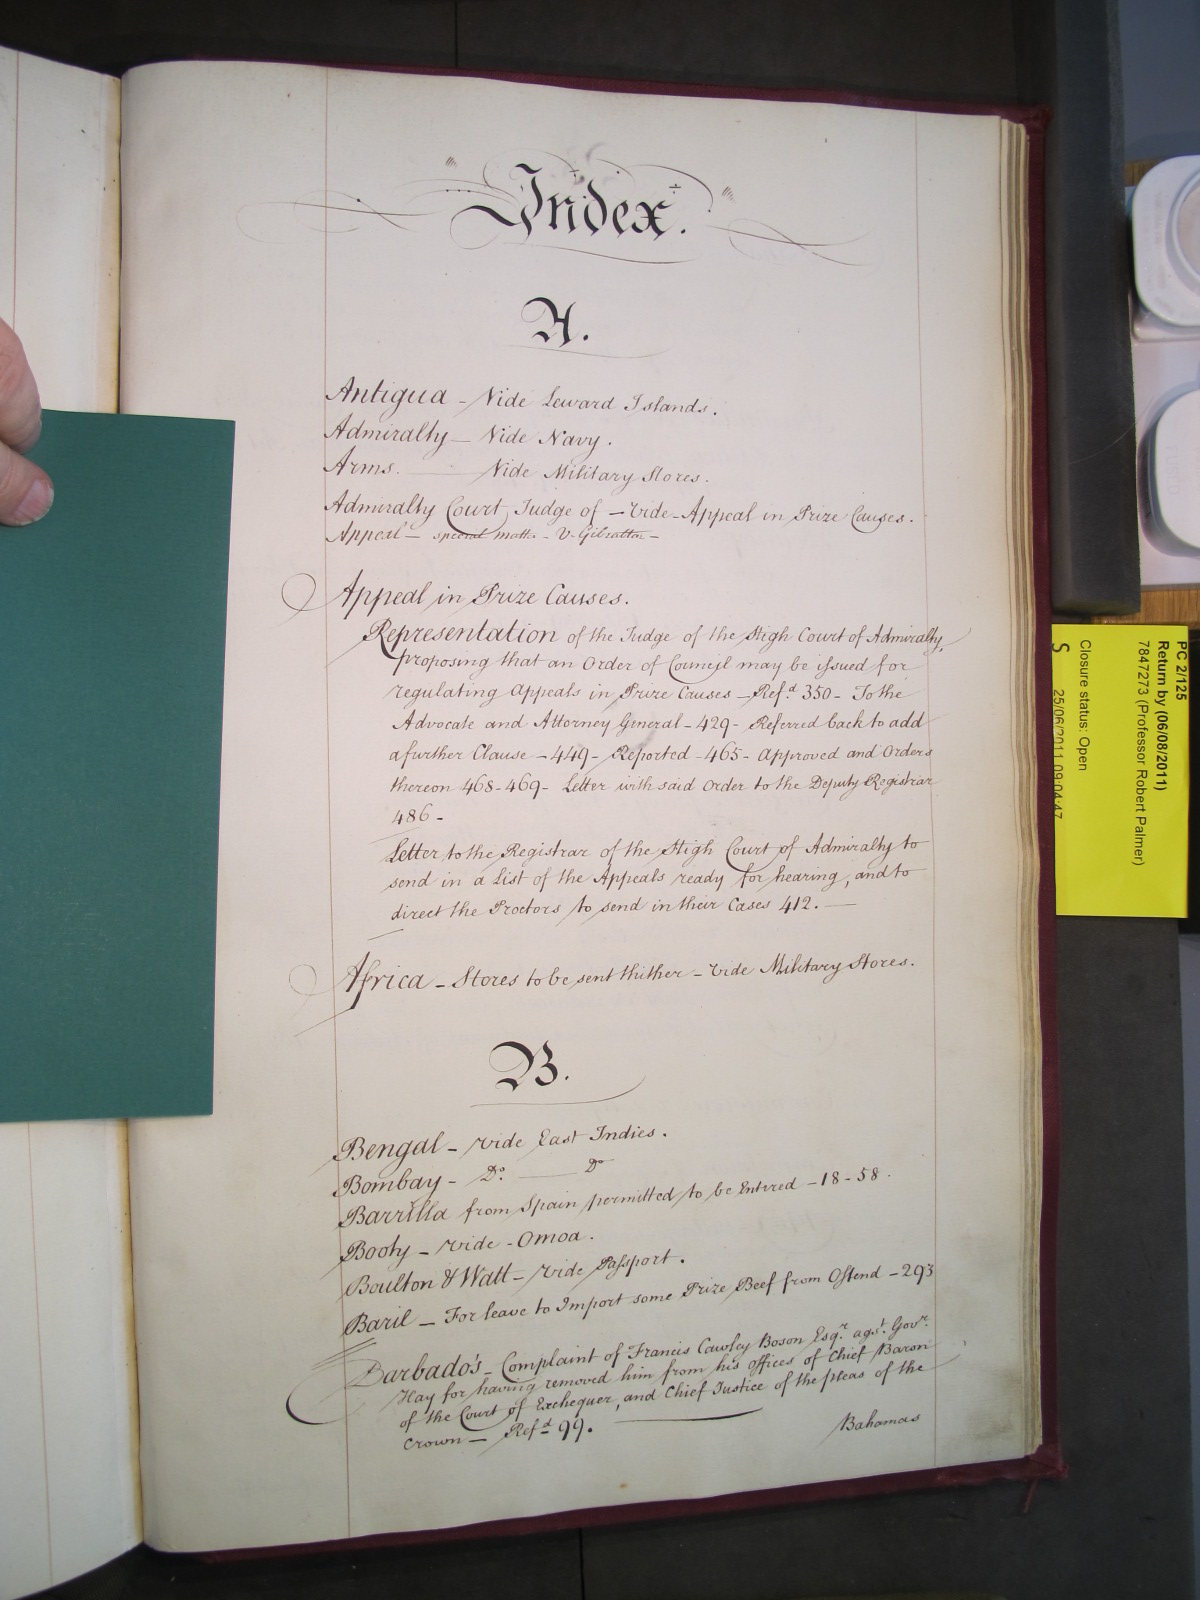 Index.
A.
Antigua - Vide Leward Islands.
Admiralty - Vide Navy.
Arms. — Vide Military Stores.
Admiralty Court, Judge of - vide - Appeal in Prize Causes.
Appeal - special matter - V. Gibraltar -
Appeal in Prize Causes.
Representation of the Judge of the High Court of Admiralty,
proposing that an Order of Council may be issued for
regulating Appeals in Prize Causes - Refd. 350 - To the
Advocate and Attorney General - 429 - Referred back to add
a further Clause - 449 - Reported - 465 - Approved and Orders
thereon 468 - 469 - Letter with said Order to the Deputy Registrar
486 -
Letter to the Registrar of the High Court of Admiralty to
send in a List of the Appeals ready for hearing, and to
direct the Proctors to send in their Cases 412. —
Africa - Stores to be sent thither - vide Military Stores.
B.
Bengal - vide East Indies.
Bombay - Do. — Do
Barrilla from Spain permitted to be Entered - 18 - 58.
Booty - vide - Omoa.
Boulton & Watt - vide Passport.
Baril - For leave to Import some Prize Beef from Ostend - 293
Barbado's - Complaint of Francis Cawley Boson Esqr. agst. Govr.
Hay for having removed him from his offices of Chief Baron
of the Court of Exchequer, and Chief Justice of the pleas of the
Crown - Refd 99. —
Bahamas
PC 2/125
Return by (06/08/2011)
7847273 (Professor Robert Palmer)
Closure status: Open
S
25/06/2011 09:04:47